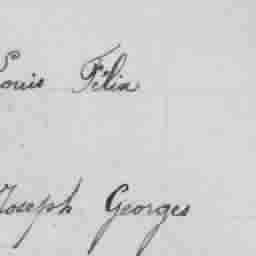 Louis Félix
Joseph Georges